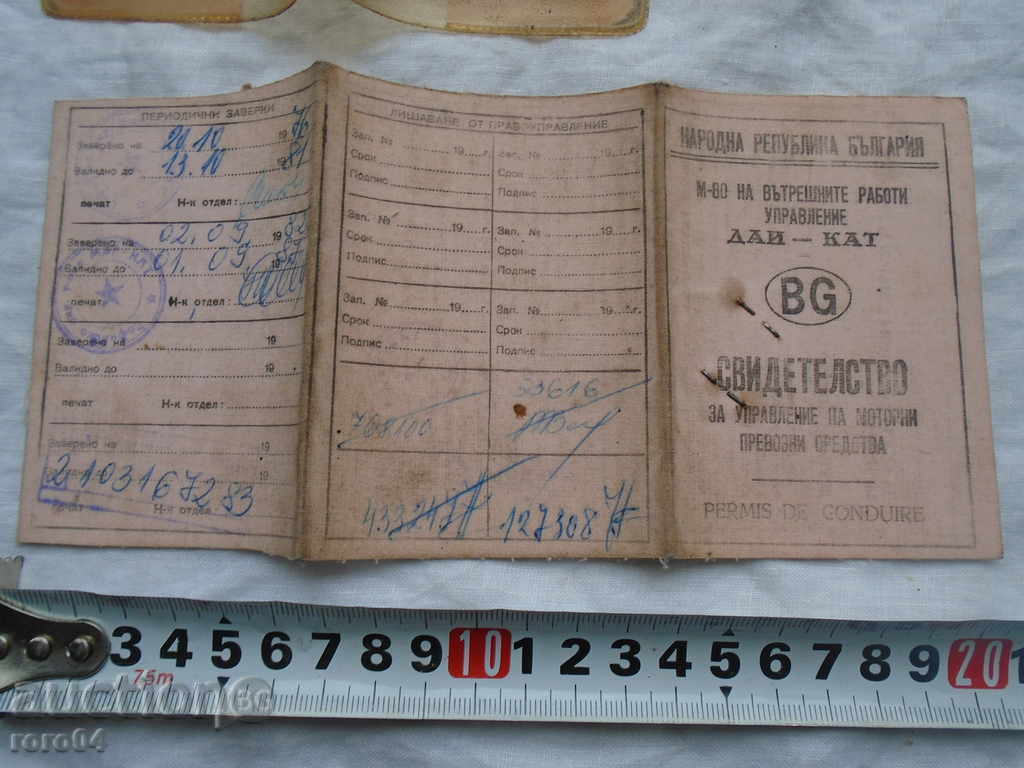 ПЕРИОДИЧНИ ЗАВЕРКИ
Заверено на 20.10 19 76
Валидно до 13.10 1981
печат Н-к отдел:
Заверено на 02.09 1982
Валидно до 01.09 19
печат Н-к отдел:
Заверено на 19
Валидно до 19
печат Н-к отдел:
Заверено на 19
19
2103167283
печат Н-к отдел
ЛИШАВАНЕ ОТ ПРАВОУПРАВЛЕНИЕ
Зап. № 19 г.
Срок
Подпис
Зап. № 19 г.
Срок
Подпис
Зап. № 19 г.
Срок
Подпис
Зап. № 19 г.
Срок
Подпис
Зап. № 19 г.
Срок
Подпис
Зап. № 19 г.
Срок
Подпис
768100
53616
433247
127308
НАРОДНА РЕПУБЛИКА БЪЛГАРИЯ
М-ВО НА ВЪТРЕШНИТЕ РАБОТИ
УПРАВЛЕНИЕ
ДАИ — КАТ
BG
СВИДЕТЕЛСТВО
ЗА УПРАВЛЕНИЕ НА МОТОРНИ
ПРЕВОЗНИ СРЕДСТВА
PERMIS DE CONDUIRE
3 4 5 6 7 8 9 10 1 2 3 4 5 6 7 8 9 20 1
7.5m
auction.bg
roro04